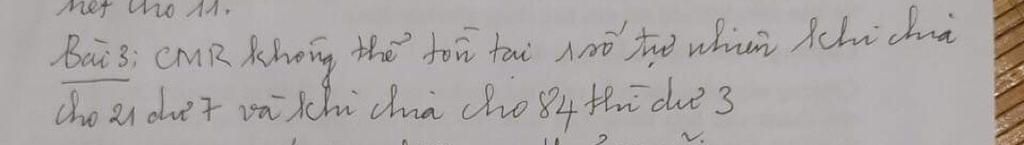 hết cho 11.
Bài 3: CMR không thể tồn tại 1 số tự nhiên khi chia
cho 21 dư 7 và khi chia cho 84 thì dư 3